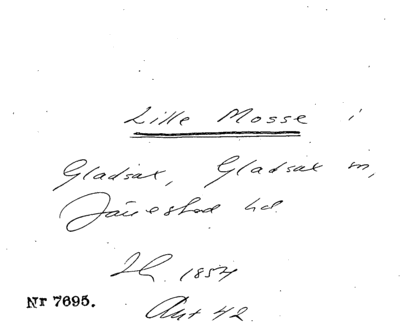 Lille Mosse i
Gladsax, Gladsax sn,
Järrestad hd.
1854
Nr 7695.
Akt 42